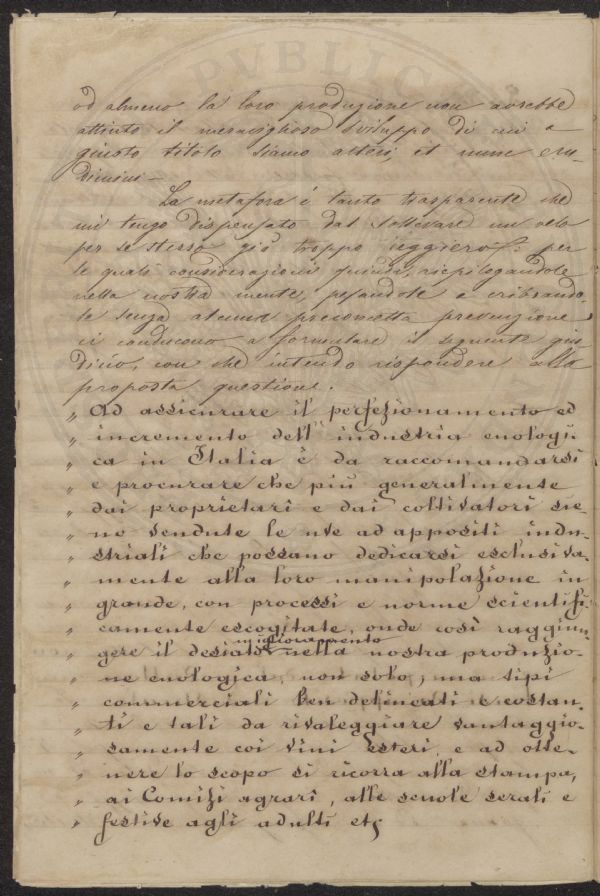 PVBLIC
od almeno la loro produzione non avrebbe
attinto il meraviglioso sviluppo di cui a
giusto titolo siamo alteri et nunc eru-
dimini —
La metafora è tanto trasparente che
mi tengo dispensato dal sollevare un velo
per se stesso già troppo leggiero: per
le quali considerazioni quindi, riepilogandole
nella nostra mente, pesandole e cribrando
le senza alcuna preconcetta prevenzione
ci conducono a formulare il seguente giu-
dizio, con che intendo rispondere alla
proposta questione.
„ Ad assicurare il perfezionamento ed
„ incremento dell' industria enologi-
„ ca in Italia è da raccomandarsi
„ e procurare che più generalmente
„ dai proprietari e dai coltivatori sie-
„ no vendute le uve ad appositi indu-
„ striali che possano dedicarsi esclusiva-
„ mente alla loro manipolazione in
„ grande, con processi e norme scientifi-
„ camente escogitate, onde così raggiun-
miglioramento
„ gere il desiato nella nostra produzio-
„ ne enologica, non solo, ma tipi
„ commerciali ben delineati e costan-
„ ti e tali da rivaleggiare vantaggio-
„ samente coi vini Esteri, e ad otte-
„ nere lo scopo si ricorra alla stampa,
„ ai Comizi agrari, alle scuole serali e
„ festive agli adulti etc